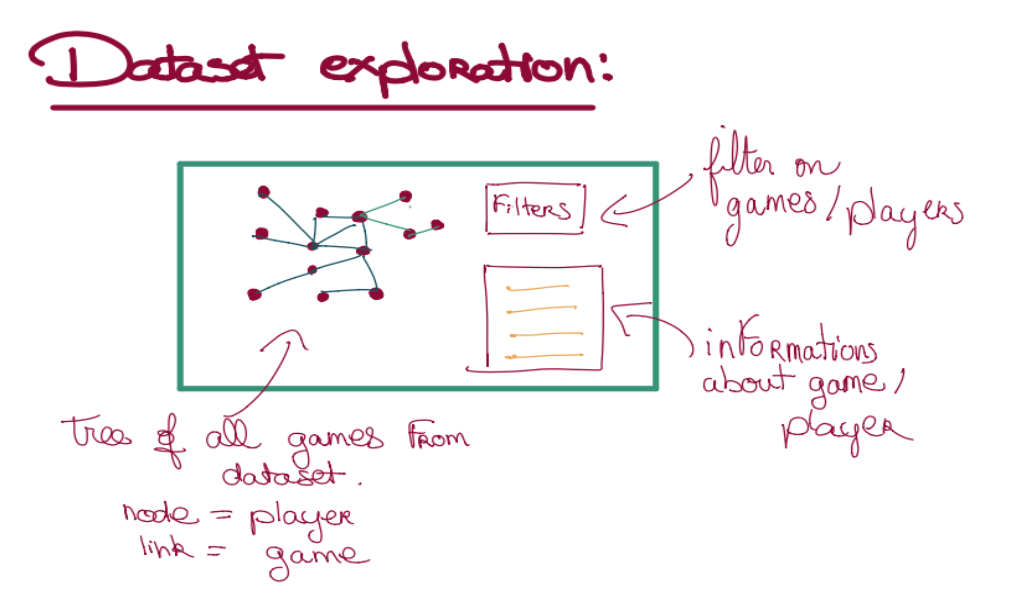 Dataset exploration:
Filters
filter on
games / players
informations
about game /
player
tree of all games from
dataset.
node = player
link = game